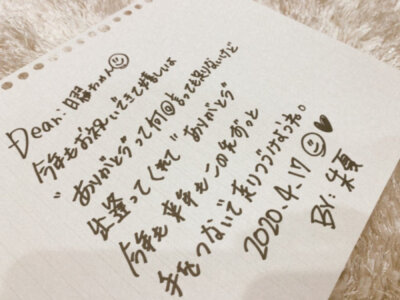 Dear. 日翠ちゃん
今年もお祝いできて嬉しいよ
"ありがとう"って何回言っても足りないけど
出逢ってくれて"ありがとう"
今年も来年もこの先ずっと
手をつないで走りつづけようね。
2020.4.17
BY: 未夏